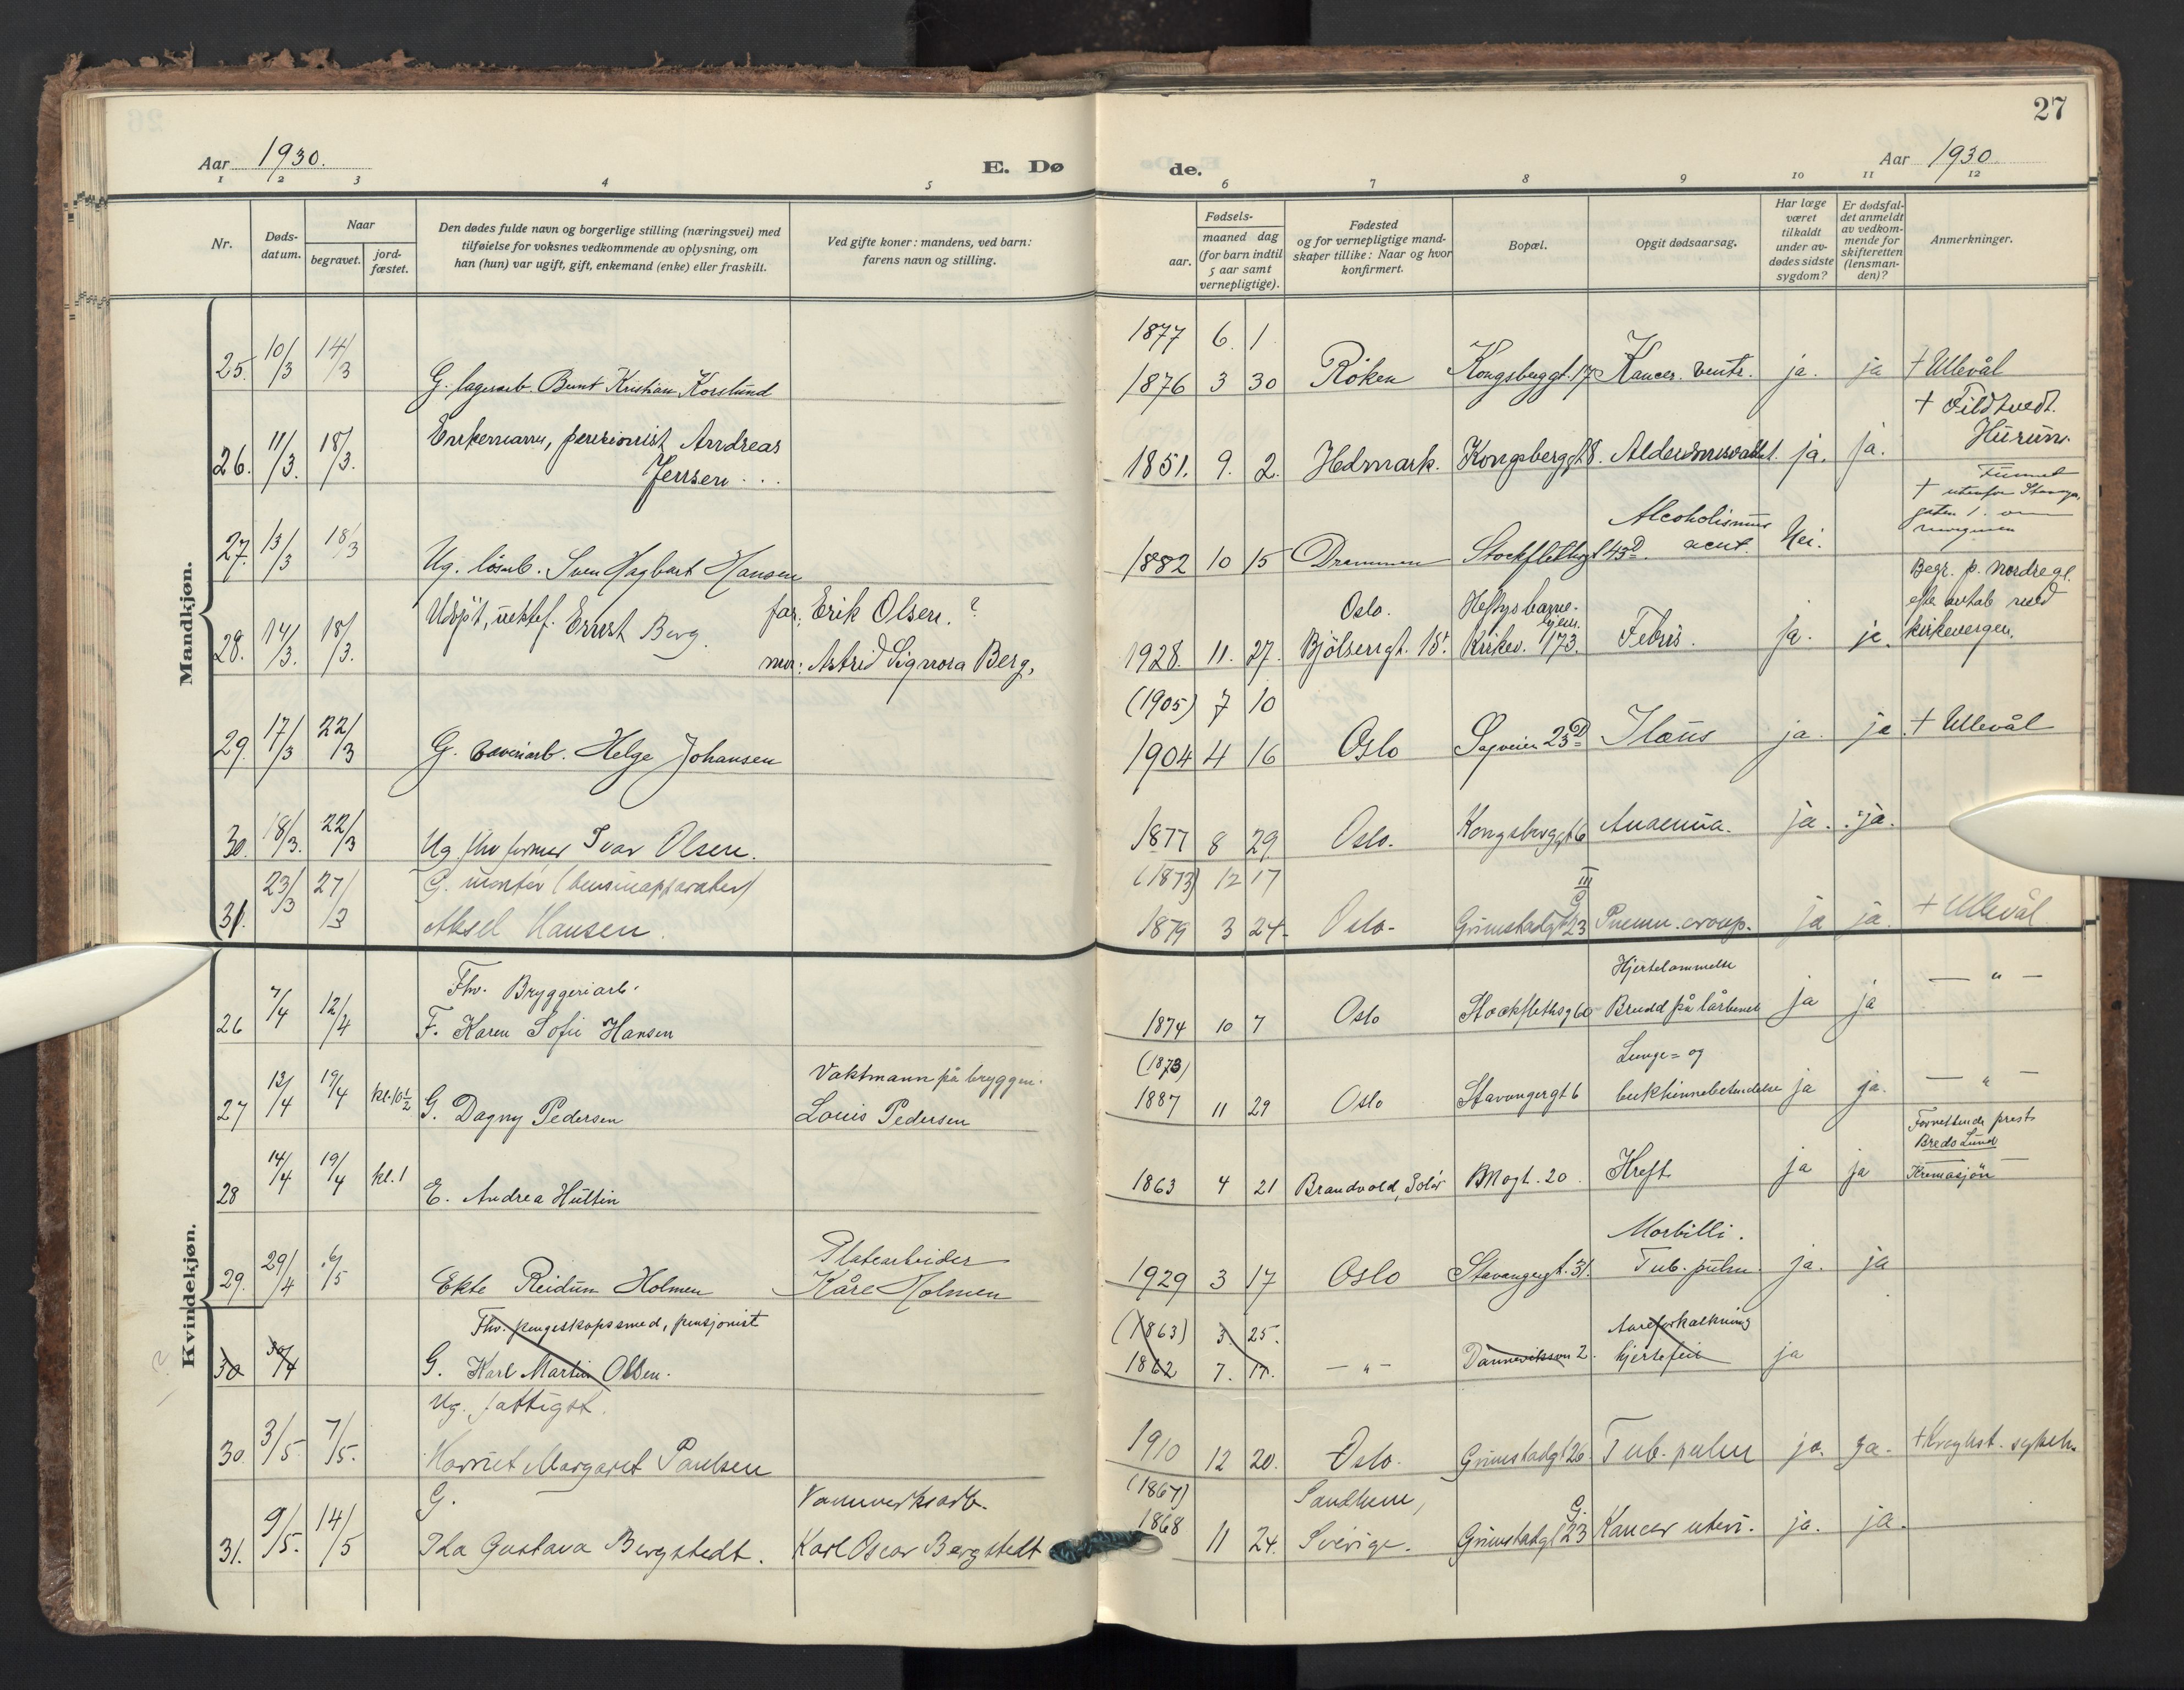 27
Aar 1930.
E. Dø
de.
Aar 1930
1 2 3 4 5 6 7 8 9 10 11 12
Nr.
Døds-
datum.
Naar
begravet.
jord-
fæstet.
Den dødes fulde navn og borgerlige stilling (næringsvei) med
tilføielse for voksnes vedkommende av oplysning, om
han (hun) var ugift, gift, enkemand (enke) eller fraskilt.
Ved gifte koner: mandens, ved barn:
farens navn og stilling.
Fødsels-
aar.
maaned dag
(for barn indtil
5 aar samt
vernepligtige).
Fødested
og for vernepligtige mand-
skaper tillike: Naar og hvor
konfirmert.
Bopæl.
Opgit dødsaarsag.
Har læge
været
tilkaldt
under av-
dødes sidste
sygdom?
Er dødsfal-
det anmeldt
av vedkom-
mende for
skifteretten
(lensman-
den)?
Anmerkninger.
Mandkjøn.
1877 6. 1
25. 10/3 14/3 G. lagerarb. Bernt Kristian Korslund 1876 3 30 Röken Kongsberggt. 17 Kancer. ventr. ja. ja + Ullevål
+ Fildtvedt.
Hurum.
26. 11/3. 18/3. Enkemann, pensionist Andreas
Jensen... 1851. 9. 2. Hedmark. Kongsberggt. 8. ja. ja.
Funnet
+ utenfor
gaten 1. om
morgenen
Alcoholismus
27. 13/3 18/3 Ug. løsarb. Sven Hagbart Hansen 1882 10 15 Drammen Stockflethsgt 43D. acut. Nei.
Begr. p. Nordre gl.
efter avtale med
kirkevergen.
28. 14/3. 18/3. Udøpt, uektef. Ernst Berg. far: Erik Olsen. ?
mor: Astrid Signora Berg,
Oslo. Heftys barne-
hjem.
1928. 11. 27. Bjölsengt. 18. Kirkev. 173. Febris. ja. ja.
(1905) 7 10
29. 17/3 22/3 G. Helge Johansen 1904 4 16 Oslo Sagveien 23D Ileus ja. ja + Ullevål
30. 18/3. 22/3 Ug. fhv former Ivar Olsen. 1877 8 29 Oslo. Kongsberggt 6 Anaemia. ja. ja.
G. montør (bensinapparater)
(1873) 12 17
31. 23/3 27/3 Aksel Hansen. 1879 3 24 Oslo. Grimstadgt 23 III Pneum. croup. ja ja. + Ullevål
Kvindekjøn.
Fhv. Bryggeriarb.
Hjertelammelse
26 7/4 12/4 F. Karen Sofie Hansen 1874 10 7 Oslo Stockflethsg 60 Brudd på lårbenet ja ja — " —
Vaktmann på bryggeri.
(1873)
Lunge- og
27 12/4 19/4 kl. 10½ G. Dagny Pedersen Louis Pedersen 1887 11 29 Oslo Stavangergt 6 bukhinnebetendelse ja ja. — " —
Forrettende prest
Bredo Lund
28 14/4 19/4 kl. 1 E. Andrea Hultin 1863 4 21 Brandvold, Solør 20 Kreft ja ja Kremasjön
Platearbeider
Morbilli.
29. 29/4 6/5 Ekte Reidun Holmen Kåre Holmen 1929 3 17 Oslo Stavangergt. 31. Tub. pulm. ja. ja
Fhv. pengeskapssmed, pensjonist
(1863) 3. 25.
Aareforkalkning
30 30/4 G. Karl Martin Olsen. 1862 7. 17. — " — Danneviksvn 2. hjertefeil ja
Ug. fattigst.
30. 3/5 7/5. Harriet Margaret Paulsen 1910 12 20. Oslo. Grimstadgt 26 Tub. pulm ja. ja.
G. Vannverksarb.
(1867)
31. 9/5. 14/5 Ida Gustava Bergstedt. Karl Oscar Bergstedt 1868 11 24. Sverige. Grimstadgt 23 G. Kancer uteri. ja. ja.